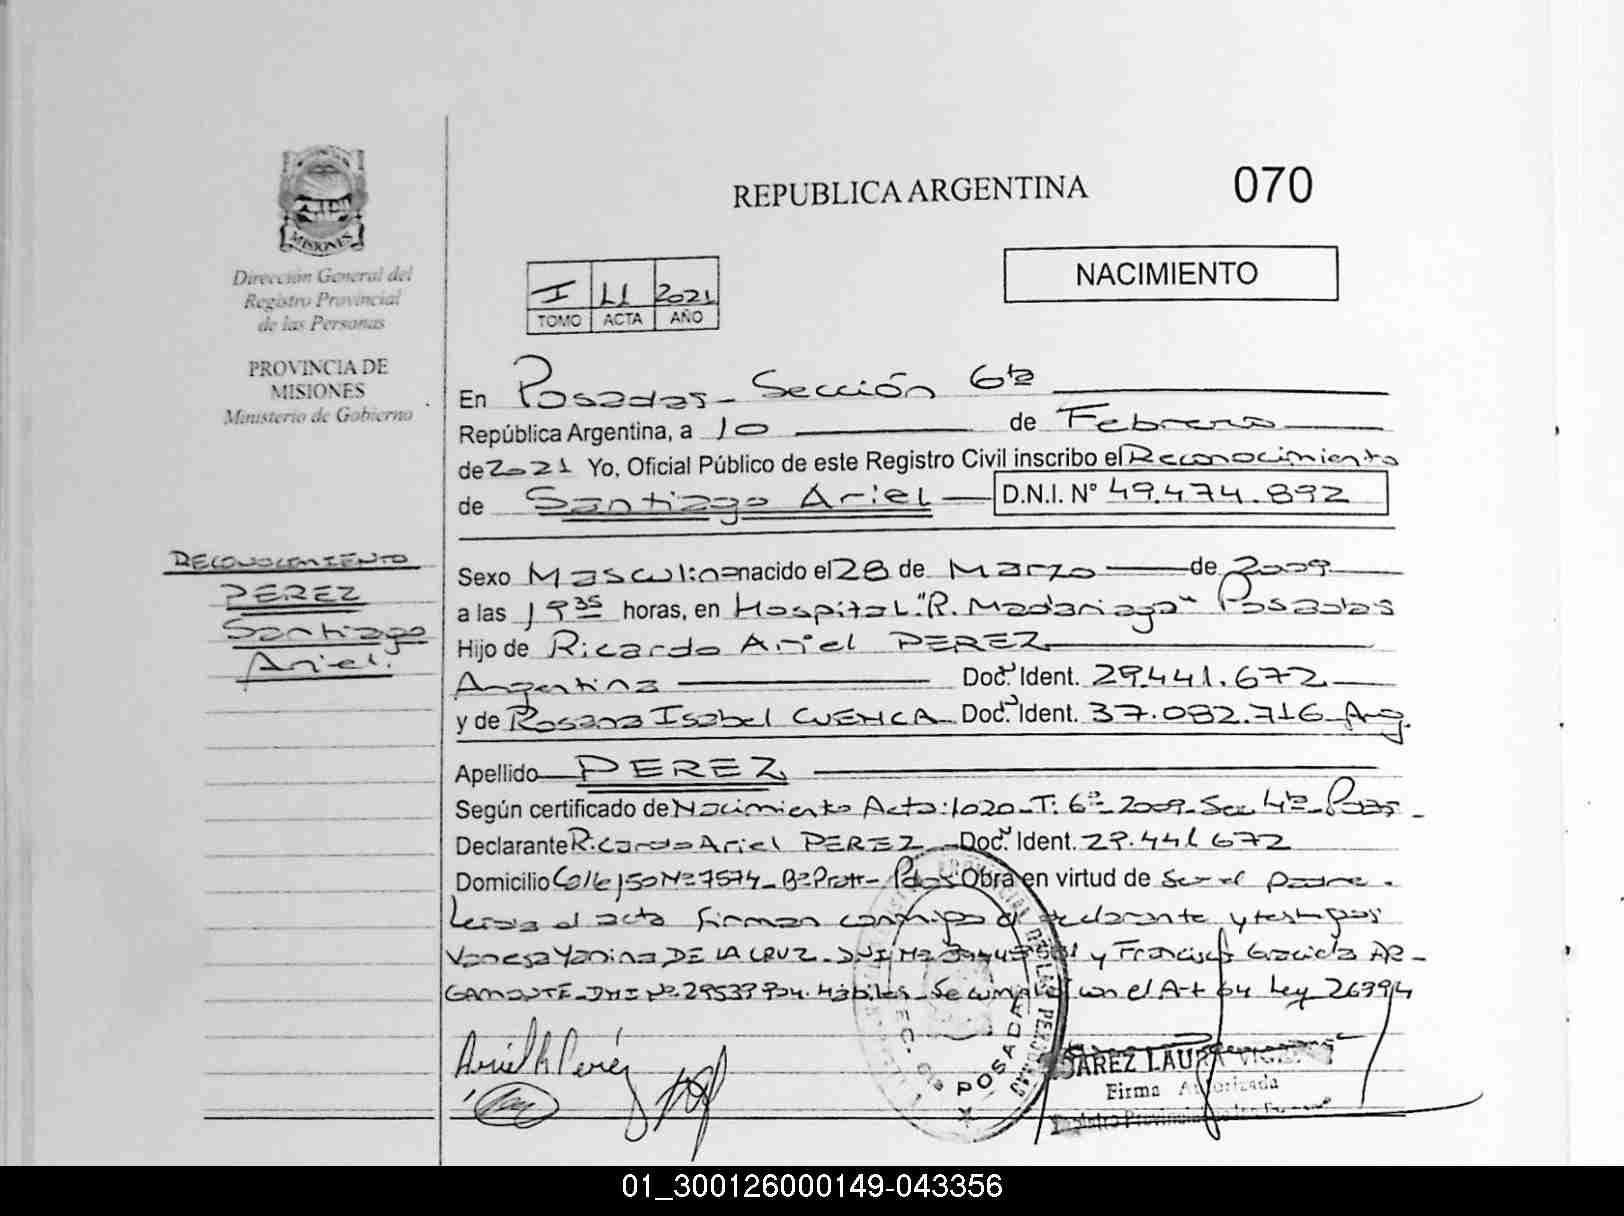 MISIONES
Dirección General del
Registro Provincial
de las Personas
PROVINCIA DE
MISIONES
Ministerio de Gobierno
REPUBLICA ARGENTINA
070
NACIMIENTO
I 11 2021
TOMO ACTA AÑO
En Posadas - Sección 6ta
República Argentina, a 10 de Febrero
de 2021 Yo, Oficial Público de este Registro Civil inscribo el Reconocimiento
de Santiago Ariel D.N.I. Nº 49.474.892
RECONOCIMIENTO
PEREZ
Santiago
Ariel.
Sexo Masculino nacido el 28 de Marzo de 2009
a las 19 35 horas, en Hospital "R. Madariaga" Posadas
Hijo de Ricardo Ariel PEREZ
Argentina Doc. Ident. 29.441.672
y de Rosana Isabel CUENCA Doc. Ident. 37.082.716 Arg.
Apellido PEREZ
Según certificado de Nacimiento Acta: 1020 - T: 6º - 2009 - Sec 4ta - Pdas -
Declarante Ricardo Ariel PEREZ - Doc. Ident. 29.441.672
Domicilio Calle 150 Nº 7574 - Bº Pratt - Pdas Obra en virtud de ser el padre.
Leída el acta firman conmigo el declarante y testigos
Vanesa Yanina DE LA CRUZ - DNI Nº y Francisca Graciela AR-
GAMONTE - DNI Nº 29537904. Hábiles - Se cumplió con el Art 64 Ley 26994
Ariel R Perez
POSADAS
SUAREZ LAURA
Firma Autorizada
Registro Provincial de las Personas
01_300126000149-043356